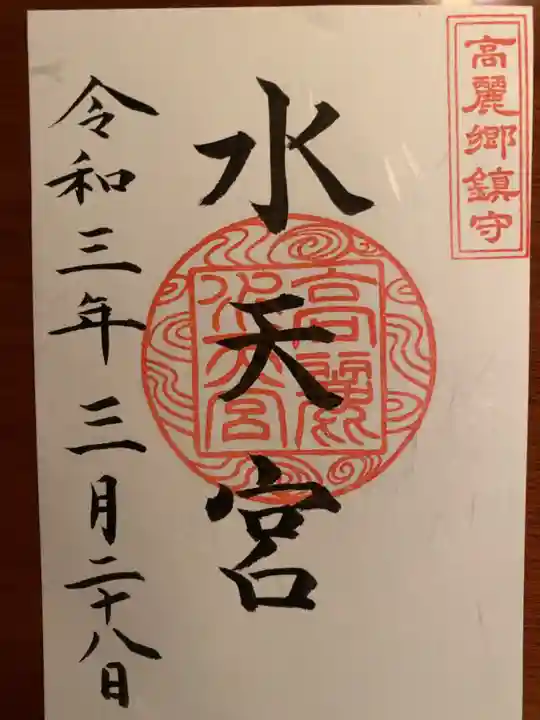 高麗郷鎮守
水天宮
高麗
水天宮
令和三年三月二十八日